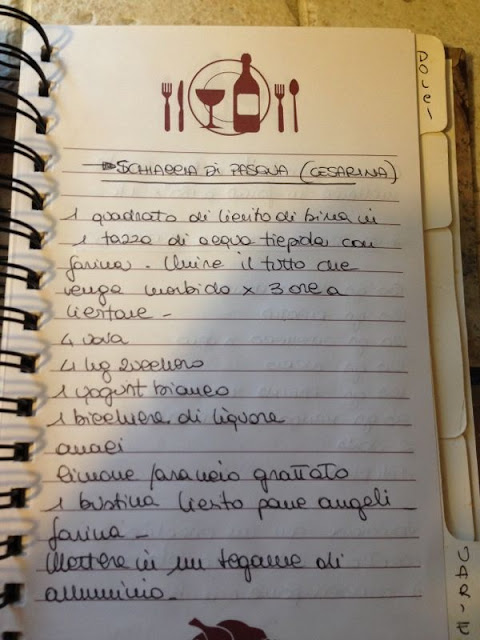 DOLCI
SCHIACCIA DI PASQUA (CESARINA)
1 quadrato di lievito di birra in
1 tazza di acqua tiepida con
farina. Unire il tutto che
venga morbido x 3 ore a
lievitare -
4 uova
4 hg zucchero
1 yogurt bianco
1 bicchiere di liquore
anaci
limone / arancio grattato
1 bustina lievito pane angeli
farina -
Mettere in un tegame di
alluminio.
VARIE